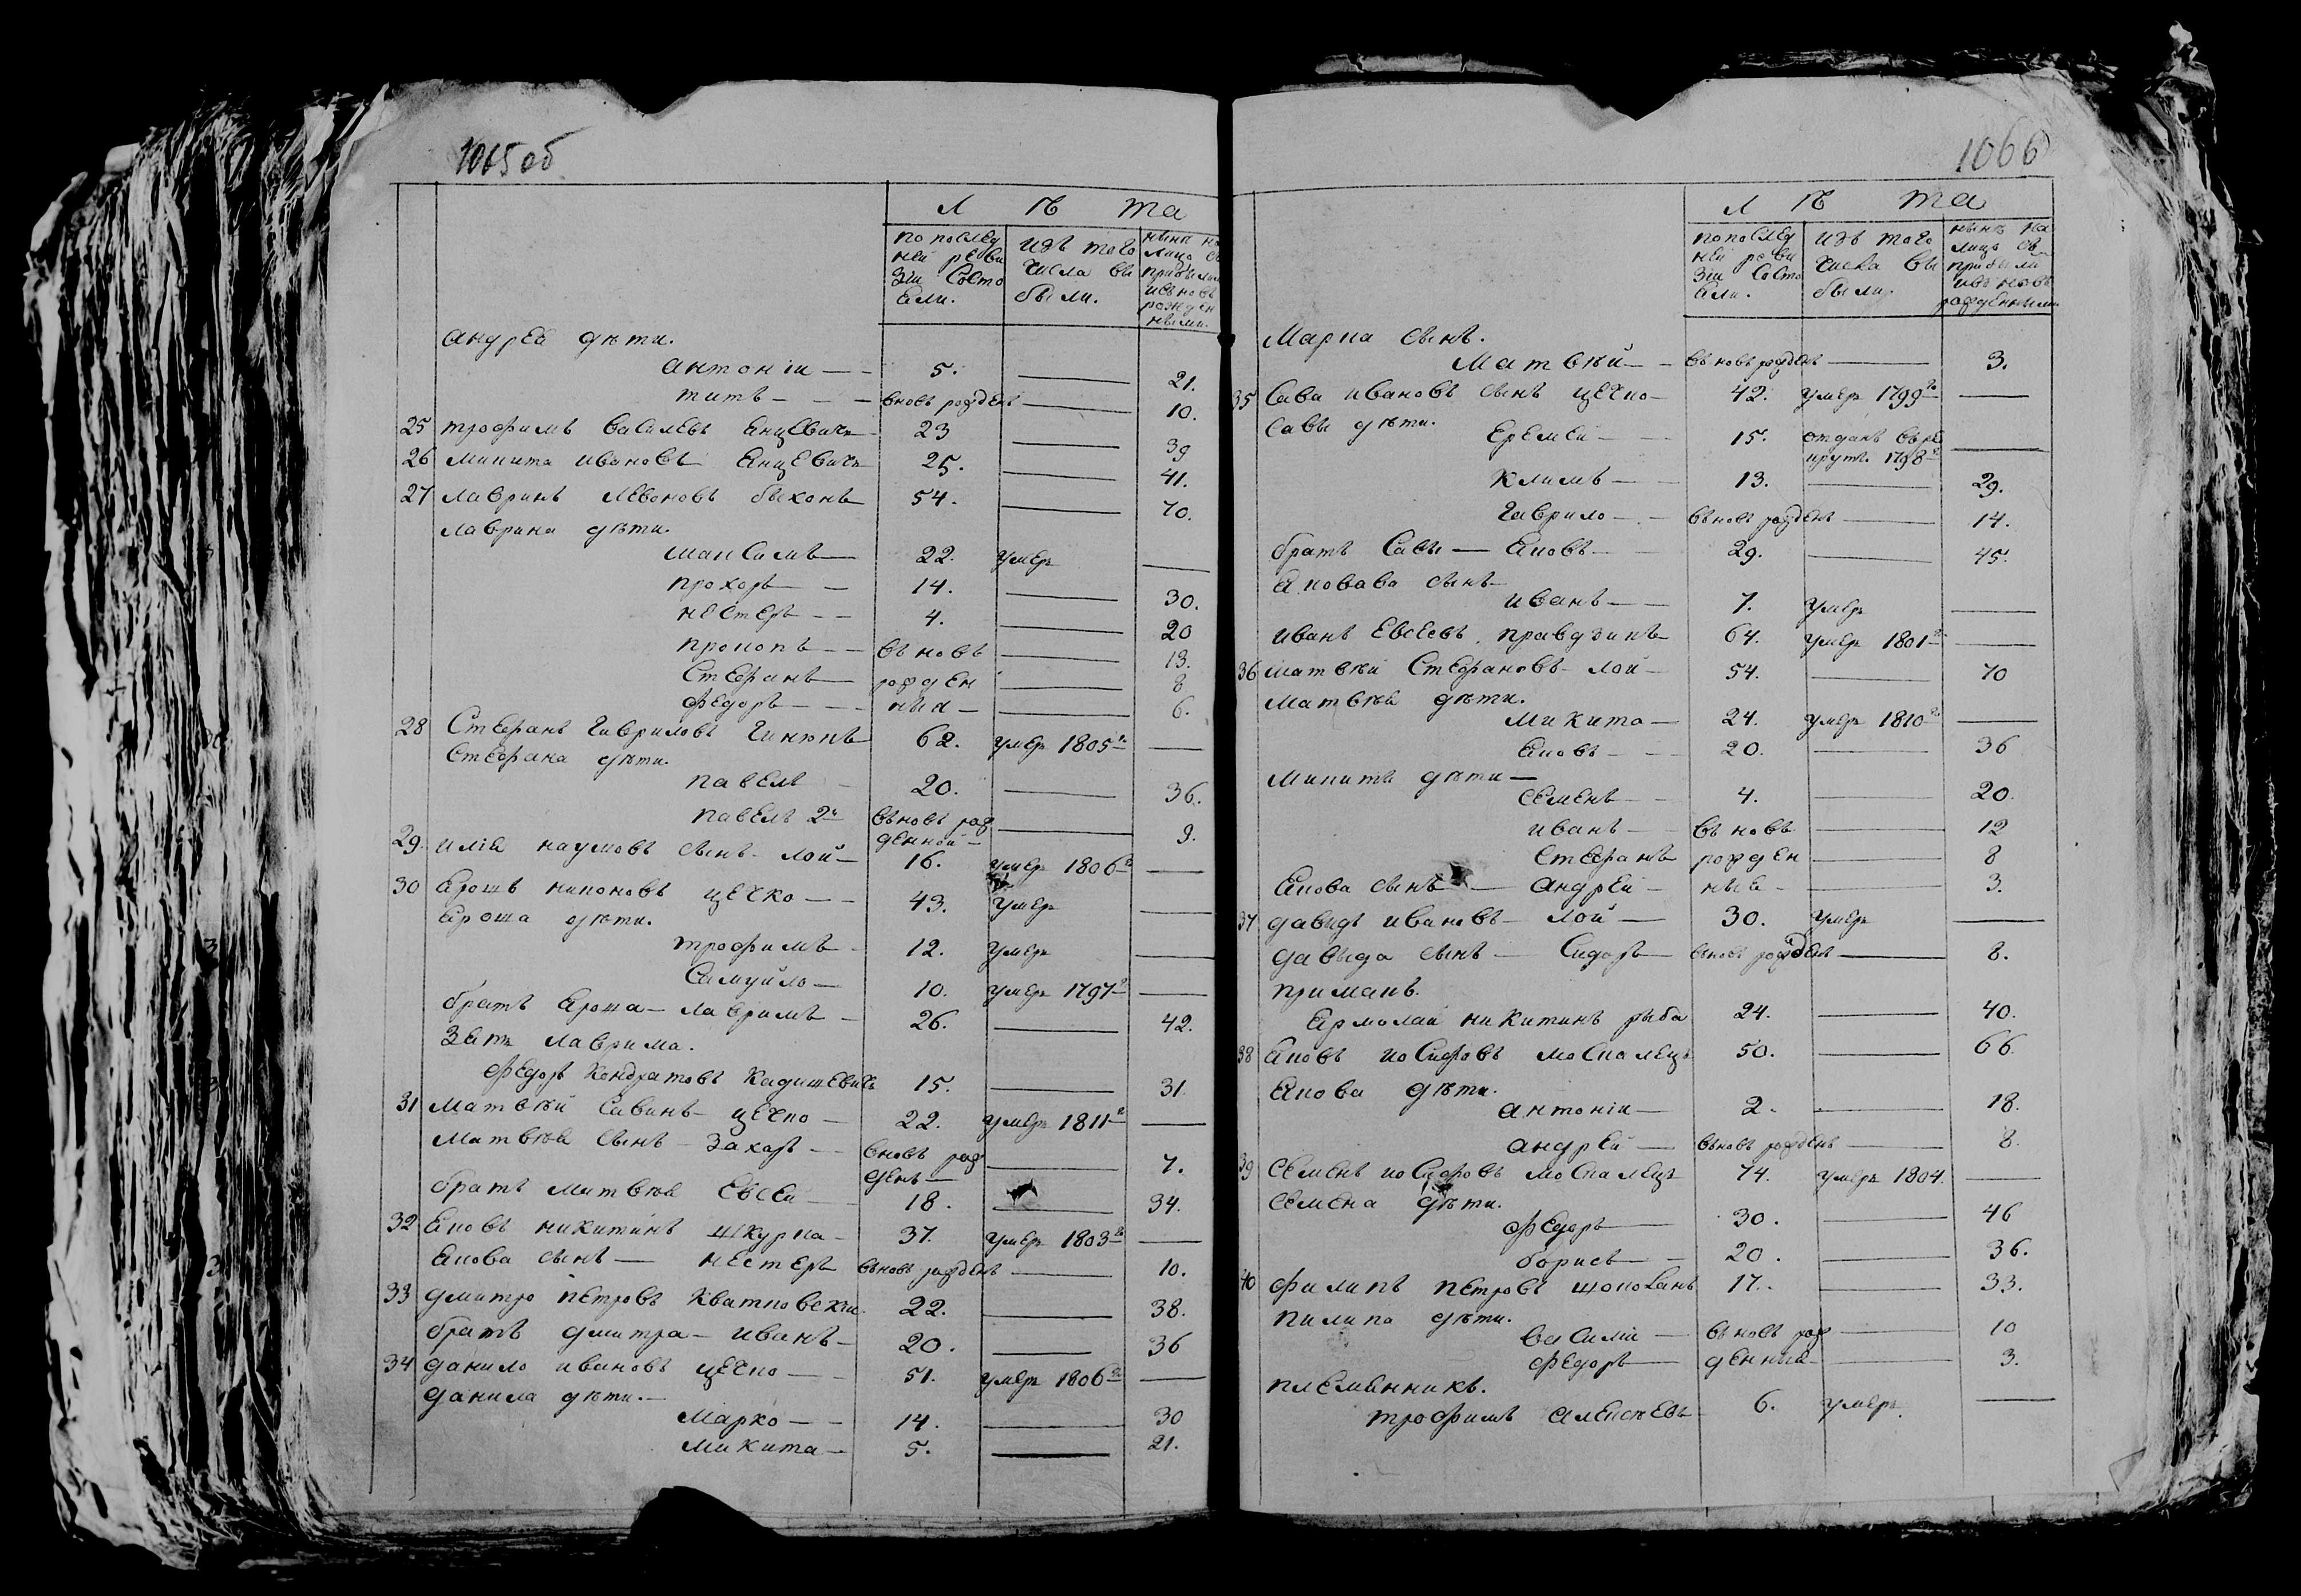 1065об
Л Ѣ та
по послед
ней реви
зіи Состо
яли.
изъ того
числа вы
были.
нынѣ на
лицо съ
прибылы
ивновь
рожден
ными.
андрея дѣти.
антоніи — — 5. — 21.
титъ — — вновь рожденъ — 10.
25 трофимъ василевъ янцевичь 23 — 39
26 микита ивановъ янцевичь 25. — 41.
27 лавринъ левоновъ быконъ 54. — 70.
лаврина дѣти.
максимъ — 22. умеръ —
прохоръ — 14. — 30.
нестеръ — — 4. — 20
прокопъ — — вновь — 13.
Стефанъ — рожден — 8
федоръ — — ныя — — 6.
28 Стефанъ гавриловъ 62. умеръ 1805го —
Стефана дѣти.
павелъ — 20. — 36.
павелъ 2й вѣновь рож
денной — — 9.
29. илія наумовъ сынъ лой — 16. умеръ 1806го —
30 ярошъ никоновъ цечко — — 43. умеръ —
яроша дѣти.
трофимъ — 12. умеръ —
Самуйло — 10. умеръ 1797го —
братъ яроша — лавримъ — 26. — 42.
зять лаврима.
федоръ кондратовъ кадишевичь 15. — 31.
31 Матвѣй савинъ цечко — 22. умеръ 1811го —
Матвѣя сынъ — захаръ — — вновь рож
денъ — — 7.
братъ матвѣя Евсей — 18. — 34.
32 яковъ никитинъ шкурка — 37. умеръ 1803го —
якова сынъ — нестеръ вѣновь рожденъ — 10.
33 дмитро петровъ квятковскіи 22. — 38.
братъ дмитра — иванъ — 20. — 36
34 данило ивановъ цечко — — 51. умеръ 1806го —
данила дѣти. —
Марко — — 14. — 30
Микита — 5. — 21.
1066
Л Ѣ та
по послед
ней реви
зіи Состо
яли.
изъ того
числа вы
были.
нынѣ на
лицо съ
прибылы
ивъновь
рожденными
Марка сынъ.
Матвѣй — — вѣновь рожденъ — 3.
35 Сава ивановъ сынъ цечко — 42. умеръ 1799го —
Савы дѣти.
Еремей — — 15. отданъ въре
круты 1798го —
климъ — — 13. — 29.
гаврило — — вѣновь рожденъ — 14.
братъ Савы — яковъ — — 29. — 45.
яковава сынъ —
иванъ — — 7. умеръ —
иванъ Евсеевъ правдзикъ — 64. умеръ 1801го —
36 матвѣй Стефановъ лой — 54. — 70
матвѣя дѣти.
микита — 24. умеръ 1810го —
яковъ — — 20. — 36
микиты дѣти —
семенъ — — 4. — 20.
иванъ — вѣновь — 12
Стефанъ рожден — 8
якова сынъ — андрей — ныя — — 3.
37 давидъ ивановъ — лой — 30. умеръ —
давыда сынъ — Сидоръ — вѣновь рожденъ — 8.
примакъ.
Ярмолай никитинъ рыба 24. — 40.
38 яковъ іосифовъ москалецъ 50. — 66.
якова дѣти.
антоніи — 2. — 18.
андрей — вѣновь рожденъ — 8.
39 Семенъ іосифовъ москалецъ 74. умеръ 1804. —
семена дѣти.
федоръ — 30. — 46
борисъ — 20. — 36.
40 филипъ петровъ 17. — 33.
пилипа дѣти.
василій — вѣновь рож — 10
федоръ — денныя — — 3.
племянникъ.
трофимъ алексѣевъ 6. умеръ —